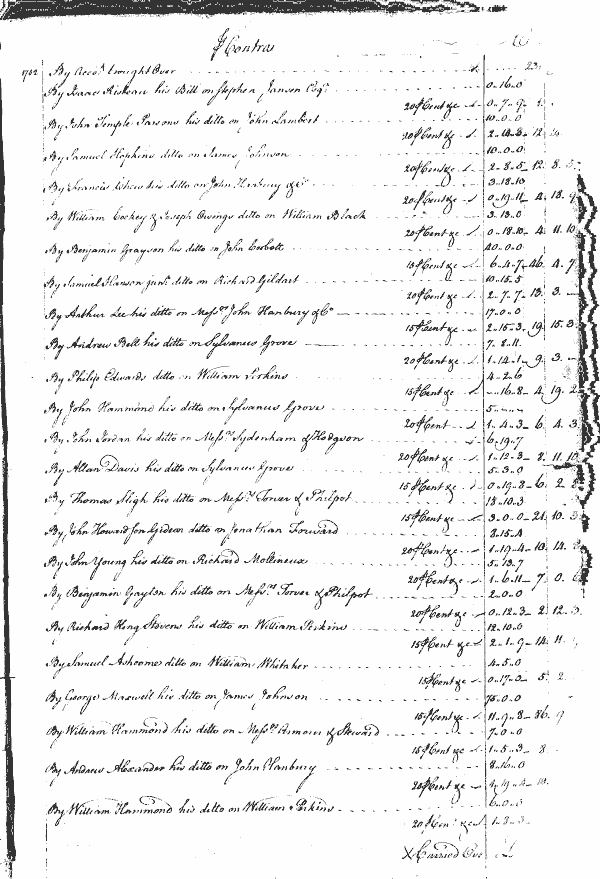 ℔ Contra
1752 By Acco.t brought Over 23
By Isaac his Bill on Stephen Jansen Esq.r 0..16..0
20 ℔ Cent &c 0..7..9
By John Temple Parsons his ditto on John Lambert 10..0..0
20 ℔ Cent &c 12
By Samuel Hopkins ditto on James Johnson 10..0..0
20 ℔ Cent &c 2..8..5.. 12. 8. 5
By Francis his ditto on John Hanbury & C.o 3..18..10
20 ℔ Cent &c 0..19..11.. 4. 18. 9
By William Cockey & Joseph Owings ditto on William Black 3..13..0
20 ℔ Cent &c 0..18..10.. 4. 11. 10
By Benjamin Grayson his ditto on John Corbett 40..0..0
15 ℔ Cent &c 6..4..7.. 46. 4. 7
By Samuel Hanson jun.r ditto on Richard Gildart 10..15..5
20 ℔ Cent &c 2..7..7.. 13. 3. —
By Arthur Lee his ditto on Mess.rs John Hanbury & C.o 17..0..0
15 ℔ Cent &c 2..15..3.. 19. 15. 3
By Andrew Bell his ditto on Sylvanus Grove 7..8..11
20 ℔ Cent &c 1..14..1.. 9. 3. —
By Philip Edwards ditto on William Perkins 4..2..6
15 ℔ Cent &c —..16..8.. 4. 19. 2
By John Hammond his ditto on Sylvanus Grove 5..—..—
20 ℔ Cent 1..4..3.. 6. 4. 3
By John Jordan his ditto on Mess.rs Sydenham & Hodgson 6..19..7
20 ℔ Cent &c 1..12..3.. 8. 11. 10
By Allan Davis his ditto on Sylvanus Grove 5..3..0
15 ℔ Cent &c 0..19..8.. 6. 2. 8
By Thomas Sligh his ditto on Mess.rs Tower & Philpot 18..10..3
15 ℔ Cent &c 3..0..0.. 21. 10. 3
By John Howard Son Gideon ditto on Jonathan Forward 8..15..4
20 ℔ Cent &c 1..19..4.. 10. 14.
By John Young his ditto on Richard Molineux 5..13..7
20 ℔ Cent &c 1..6..11.. 7. 0. 6
By Benjamin Gaylon his ditto on Mess.rs Tower & Philpot 2..0..0
20 ℔ Cent &c 0..12..3.. 2. 12. 3
By Richard King Stevens his ditto on William Perkins 12..10..0
15 ℔ Cent &c 2..1..9.. 14. 11.
By Samuel Ashcome ditto on William Whitaker 4..5..0
15 ℔ Cent &c 0..17..0.. 5. 2
By George Maxwell his ditto on James Johnson 75..0..0
15 ℔ Cent &c 11..9..8.. 86. 9
By William Hammond his ditto on Mess.rs Armour & Steward 7..0..0
15 ℔ Cent &c 1..5..3.. 8
By Andrew Alexander his ditto on John Hanbury 8..16..0
20 ℔ Cent &c 1..19..4.. 10.
By William Hammond his ditto on William Perkins 6..0..0
20 ℔ Cent &c 1..8..3
Carried Over £